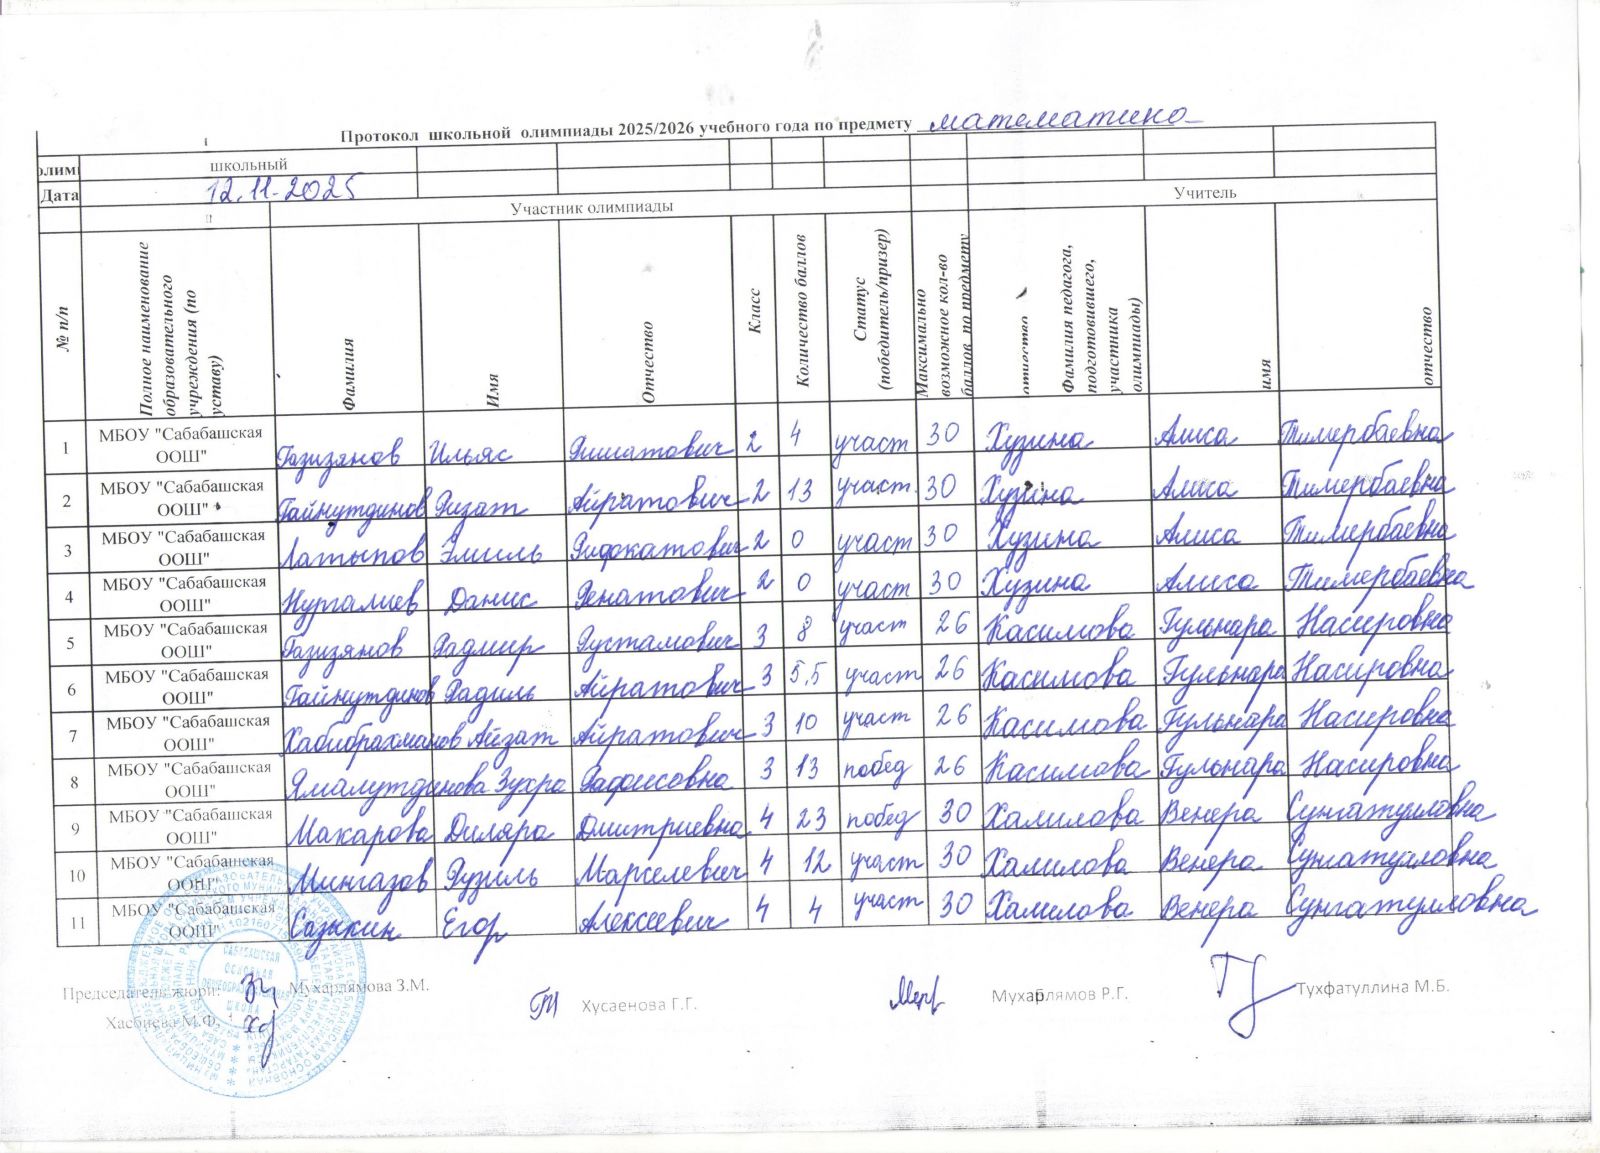 Протокол школьной олимпиады 2025/2026 учебного года по предмету математика
олим школьный
Дата 12.11.2025
Участник олимпиады Учитель
№ п/п Полное наименование образовательного учреждения (по уставу) Фамилия Имя Отчество Класс Количество баллов Статус (победитель/призер) Максимально возможное кол-во баллов по предмету Фамилия педагога, подготовившего, участника олимпиады) имя отчество
1 МБОУ "Сабабашская ООШ" Газизянов Ильяс Ришатович 2 4 участ 30 Хузина Алиса Тимербаевна
2 МБОУ "Сабабашская ООШ" Гайнутдинов Ризат Айратович 2 13 участ. 30 Хузина Алиса Тимербаевна
3 МБОУ "Сабабашская ООШ" Латыпов Эмиль Рифкатович 2 0 участ 30 Хузина Алиса Тимербаевна
4 МБОУ "Сабабашская ООШ" Нургалиев Данис Ренатович 2 0 участ 30 Хузина Алиса Тимербаевна
5 МБОУ "Сабабашская ООШ" Газизянов Радмир Рустамович 3 8 участ 26 Касимова Гульнара Насировна
6 МБОУ "Сабабашская ООШ" Гайнутдинов Радиль Айратович 3 5,5 участ 26 Касимова Гульнара Насировна
7 МБОУ "Сабабашская ООШ" Хабибрахманов Айзат Айратович 3 10 участ 26 Касимова Гульнара Насировна
8 МБОУ "Сабабашская ООШ" Ямалутдинова Зухра Рафисовна 3 13 побед 26 Касимова Гульнара Насировна
9 МБОУ "Сабабашская ООШ" Макарова Диляра Дмитриевна 4 23 побед 30 Халилова Венера Сунгатулловна
10 МБОУ "Сабабашская ООШ" Мингазов Рузиль Марселевич 4 12 участ 30 Халилова Венера Сунгатулловна
11 МБОУ "Сабабашская ООШ" Сазыкин Егор Алексеевич 4 4 участ 30 Халилова Венера Сунгатулловна
Председатель жюри: Мухарлямова З.М. Хусаенова Г.Г. Мухарлямов Р.Г. Тухфатуллина М.Б.
Хасбиева М.Ф.
САБАБАШСКАЯ
ОСНОВНАЯ
ОБЩЕОБРАЗОВАТЕЛЬНАЯ
ШКОЛА